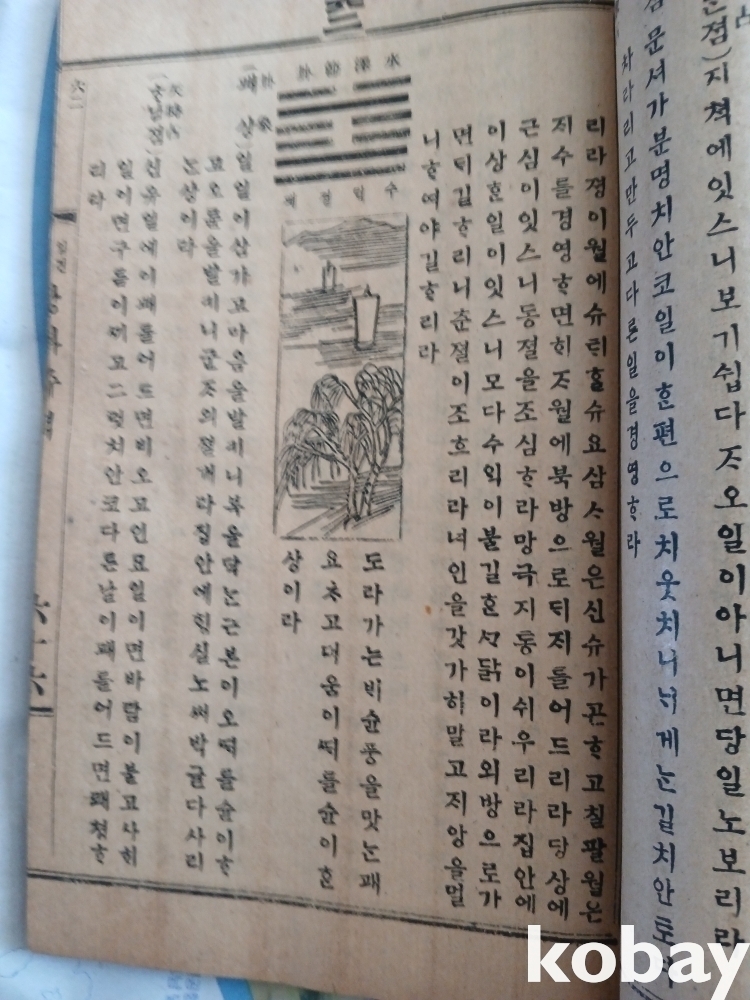 졈)지쳑에잇스니보기쉽다ᄌᆞ오일이아니면당일노보리라
문셔가분명치안코일이ᄒᆞᆫ편으로치웃치니너게ᄂᆞᆫ길치안토
차라리고만두고다른일을경영ᄒᆞ라
리라졍이월에슈ᄐᆡᄒᆞᆯ슈요삼ᄉᆞ월은신슈가곤ᄒᆞ고칠팔월은
ᄌᆡ수를경영ᄒᆞ면ᄒᆡᄌᆞ월에북방으로ᄃᆡᄌᆡ를어드리라당상에
근심이잇스니동졀을조심ᄒᆞ라망극지통이쉬우리라집안에
이상ᄒᆞᆫ일이잇스니모다수ᄋᆡᆨ이불길ᄒᆞᆫ닭이라외방으로가
면ᄃᆡ길ᄒᆞ리니춘졀이조흐리라녀인을갓가히말고ᄌᆡ앙을멀
니ᄒᆞ여야길ᄒᆞ리라
水澤節卦
수ᄐᆡᆨ졀괘
도라가는ᄇᆡ슌풍을맛ᄂᆞᆫ괘
요초고대움이ᄯᅢ를슌이ᄒᆞᆫ
상이라
卦象
(괘상)일일이삼가고마음을발키니복을닥ᄂᆞᆫ근본이오ᄯᅢ를슌이ᄒᆞ
고오륜을발키니군ᄌᆞ의졀개라집안에힝실노써박귤다사리
논상이라
天時占
일에이괘를어드면비오고인묘일이면바람이불고사ᄒᆡ
일이면구름이ᄭᅵ고그럿치안코다른날이괘를어드면쾌쳥ᄒᆞ
리라
六二
六十六
kobay